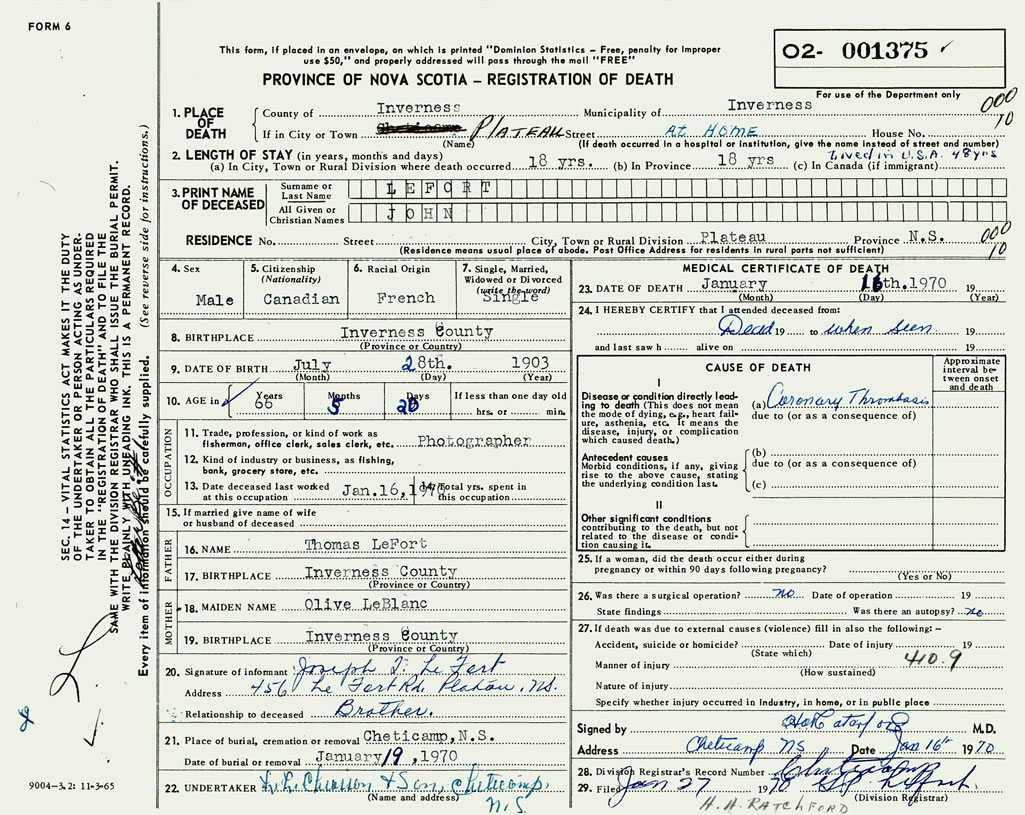 FORM 6
This form, if placed in an envelope, on which is printed "Dominion Statistics – Free, penalty for improper
use $50," and properly addressed will pass through the mail "FREE"
PROVINCE OF NOVA SCOTIA – REGISTRATION OF DEATH
O2- 001375
For use of the Department only
1. PLACE OF DEATH
County of Inverness Municipality of Inverness
000
10
If in City or Town PLATEAU Street AT HOME House No.
(Name) (If death occurred in a hospital or institution, give the name instead of street and number)
2. LENGTH OF STAY (in years, months and days) Lived in U.S.A. 48 yrs
(a) In City, Town or Rural Division where death occurred 18 yrs. (b) In Province 18 yrs (c) In Canada (if immigrant)
3. PRINT NAME OF DECEASED
Surname or Last Name LEFORT
All Given or Christian Names JOHN
RESIDENCE No. Street City, Town or Rural Division Plateau Province N.S.
000
10
(Residence means usual place of abode. Post Office Address for residents in rural parts not sufficient)
4. Sex
Male
5. Citizenship
(Nationality)
Canadian
6. Racial Origin
French
7. Single, Married,
Widowed or Divorced
(write the word)
Single
8. BIRTHPLACE Inverness County
(Province or Country)
9. DATE OF BIRTH July 28th. 1903
(Month) (Day) (Year)
10. AGE in Years Months Days If less than one day old
66 5 20 hrs. or min.
OCCUPATION
11. Trade, profession, or kind of work as
fisherman, office clerk, sales clerk, etc. Photographer
12. Kind of industry or business, as fishing,
bank, grocery store, etc.
13. Date deceased last worked
at this occupation Jan.16,1970
14. Total yrs. spent in
this occupation
15. If married give name of wife
or husband of deceased
FATHER
16. NAME Thomas LeFort
17. BIRTHPLACE Inverness County
(Province or Country)
MOTHER
18. MAIDEN NAME Olive LeBlanc
19. BIRTHPLACE Inverness County
(Province or Country)
20. Signature of informant Joseph T. Le Fort
Address 456 Le Fort Rd. Plateau, NS.
Relationship to deceased Brother.
21. Place of burial, cremation or removal Cheticamp, N.S.
Date of burial or removal January 19, 1970
22. UNDERTAKER Chiasson & Son, Cheticamp,
(Name and address) N.S.
MEDICAL CERTIFICATE OF DEATH
23. DATE OF DEATH January 16th. 1970 19
(Month) (Day) (Year)
24. I HEREBY CERTIFY that I attended deceased from:
Dead 19 to when seen 19
and last saw h alive on 19
CAUSE OF DEATH
Approximate interval be-
tween onset
and death
I
Disease or condition directly lead-
ing to death (This does not
mean the mode of dying, e.g., heart fail-
ure, asthenia, etc. It means the
disease, injury, or complication
which caused death.)
(a) Coronary Thrombosis
due to (or as a consequence of)
Antecedent causes
Morbid conditions, if any, giving
rise to the above cause, stating
the underlying condition last.
(b)
due to (or as a consequence of)
(c)
II
Other significant conditions
contributing to the death, but not
related to the disease or condi-
tion causing it.
25. If a woman, did the death occur either during
pregnancy or within 90 days following pregnancy?
(Yes or No)
26. Was there a surgical operation? no Date of operation 19
State findings Was there an autopsy? no
27. If death was due to external causes (violence) fill in also the following: –
Accident, suicide or homicide? Date of injury 19
(State which)
410.9
Manner of injury
(How sustained)
Nature of injury
Specify whether injury occurred in industry, in home, or in public place
Signed by M.D.
Address Cheticamp NS Date Jan 16th 1970
28. Division Registrar's Record Number
29. Filed Jan 27 1970
(Division Registrar)
H. H. RATCHFORD
SEC. 14 – VITAL STATISTICS ACT MAKES IT THE DUTY
OF THE UNDERTAKER OR PERSON ACTING AS UNDER-
TAKER TO OBTAIN ALL THE PARTICULARS REQUIRED
IN THE "REGISTRATION OF DEATH" AND TO FILE THE
SAME WITH THE DIVISION REGISTRAR WHO SHALL ISSUE THE BURIAL PERMIT.
WRITE PLAINLY WITH UNFADING INK. THIS IS A PERMANENT RECORD.
Every item of information should be carefully supplied. (See reverse side for instructions.)
9004-3.2: 11-3-65